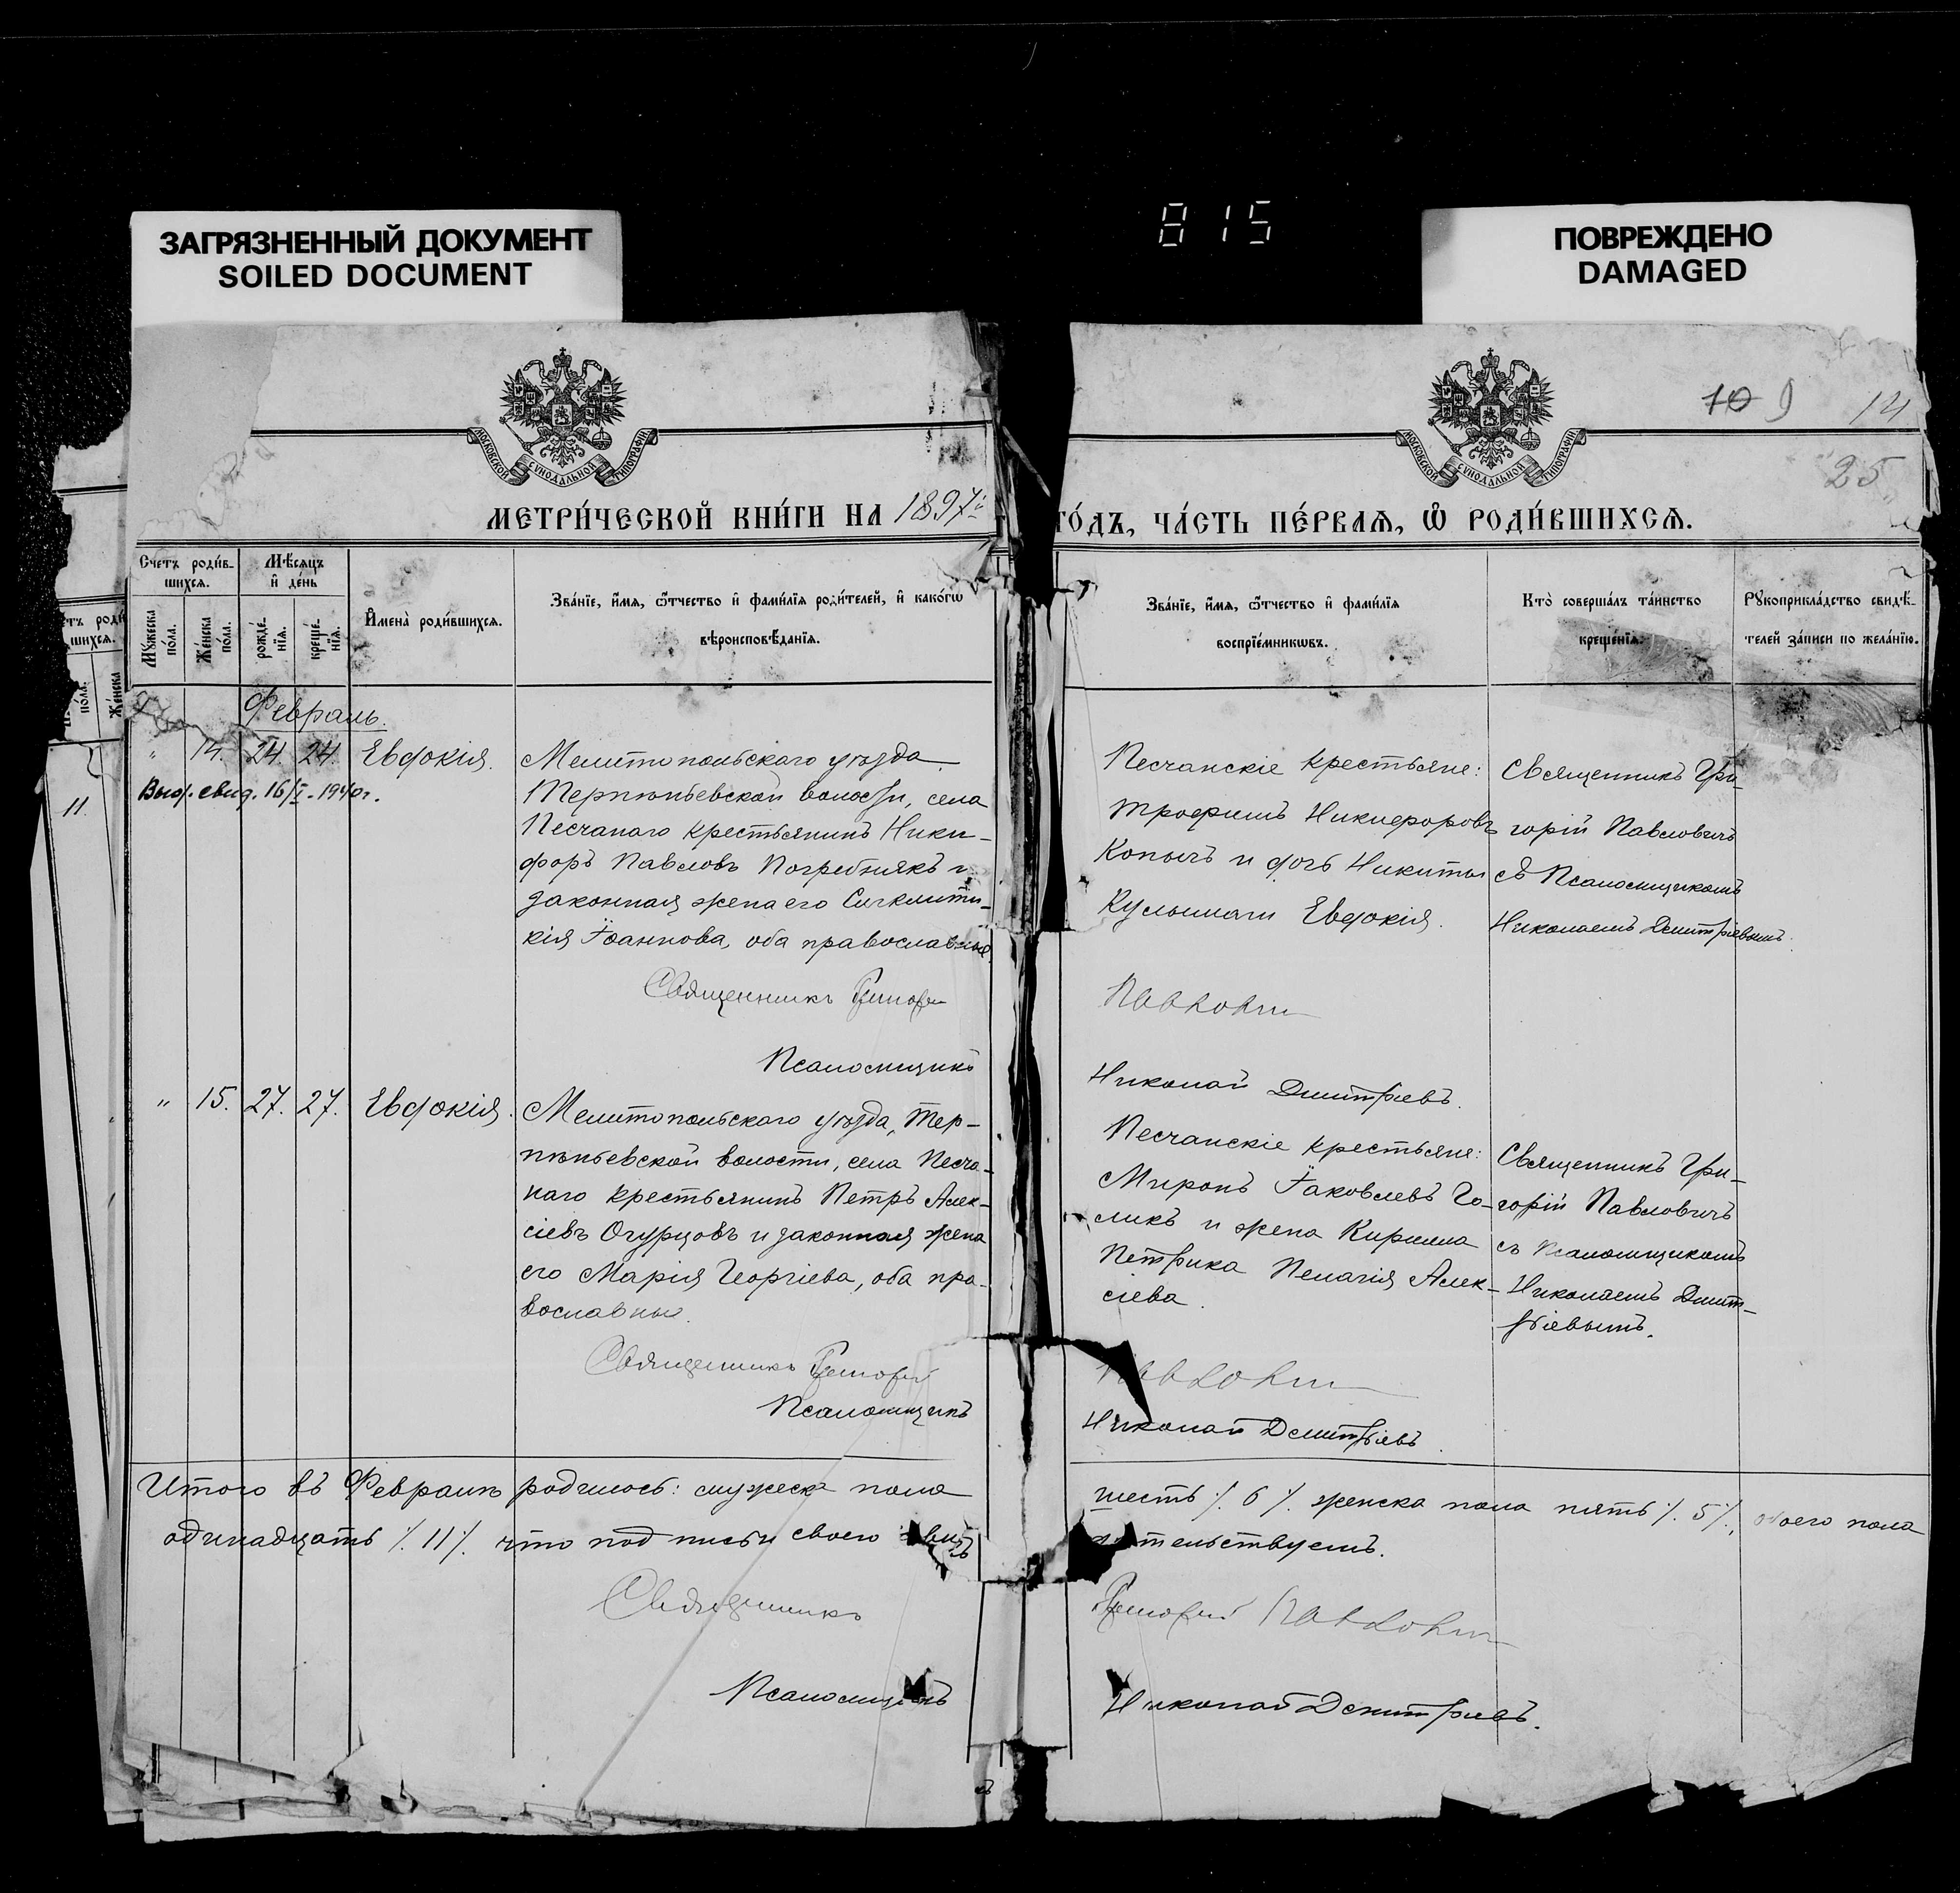 ЗАГРЯЗНЕННЫЙ ДОКУМЕНТ
SOILED DOCUMENT
815
ПОВРЕЖДЕНО
DAMAGED
МОСКОВСКОЙ СУНОДАЛЬНОЙ ТИПОГРАФІИ
МОСКОВСКОЙ СУНОДАЛЬНОЙ ТИПОГРАФІИ
10 9 14
25
МЕТРИ́ЧЕСКОЙ КНИ́ГИ НА 1897й
ГО́ДЪ, ЧА́СТЬ ПЕ́РВАѦ, Ѡ҆ РОДИ́ВШИХСѦ.
Счетъ роди́в-
шихсѧ.
Мѣ́сѧцъ
и҆ де́нь
Мꙋ́жеска
по́ла.
Же́нска
по́ла.
рожде́-
нїѧ.
креще́-
нїѧ.
И҆мена̀ роди́вшихсѧ.
Зва́нїе, и҆́мѧ, ѻ҆́тчество и҆ фами́лїѧ роди́телей, и҆ како́гѡ
вѣроисповѣ́данїѧ.
Зва́нїе, и҆́мѧ, ѻ҆́тчество и҆ фами́лїѧ
воспрїе́мникѡвъ.
Кто̀ соверша́лъ та́инство
креще́нїѧ.
Рꙋкоприкла́дство свидѣ́-
телей за́писи по жела́нїю.
Февраль.
" 14. 24. 24. Евдокія.
Выд. свид. 16/I-1940г.
11
Мелитопольскаго уѣзда
Терпѣньевской волости, села
Песчанаго крестьянинъ Ники-
форъ Павловъ Погребнякъ и
законная жена его Сигклити-
кія Іоаннова, оба православные.
Священникъ Григорій
Псаломщикъ
Песчанскіе крестьяне:
Трофимъ Никифоровъ
Копычъ и дочь Никиты
Евдокія.
Павловичъ
Николай Дмитріевъ.
Священникъ Гри-
горій Павловичъ
съ Псаломщикомъ
Николаемъ Дмитріевымъ.
" 15. 27. 27. Евдокія.
Мелитопольскаго уѣзда, Тер-
пѣньевской волости, села Песча-
наго крестьянинъ Петръ Алек-
сіевъ Огурцовъ и законная жена
его Марія Георгіева, оба пра-
вославные.
Священникъ Григорій
Псаломщикъ
Песчанскіе крестьяне:
Миронъ Іаковлевъ Го-
ликъ и жена Кирилла
Петрика Пелагія Алек-
сіева.
Павловичъ
Николай Дмитріевъ.
Священникъ Гри-
горій Павловичъ
съ Псаломщикомъ
Николаемъ Дмит-
ріевымъ.
Итого въ Февралѣ родилось: мужеска пола шесть ٪ 6 ٪ женска пола пять ٪ 5 ٪, обоего пола
одинадцать ٪ 11 ٪ что подписью своею свидѣтельствуемъ.
Священникъ Григорій Павловичъ
Псаломщикъ Николай Дмитріевъ.